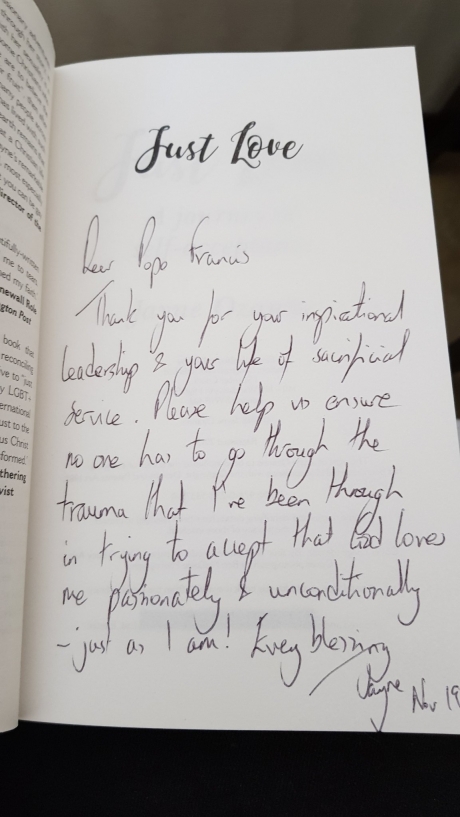 Just Love
Dear Pope Francis
Thank you for your inspirational
leadership & your life of sacrificial
service. Please help us ensure
no one has to go through the
trauma that I've been through
in trying to accept that God loves
me passionately & unconditionally
- just as I am! Every blessing
Jayne Nov 19
director of the
tifully-written
me to seem
ned my faith
newall Role
gton Post
book that
reconciling
ve to "just
y LGBT+
ernational
ust to the
us Christ
formed.
thering
vist